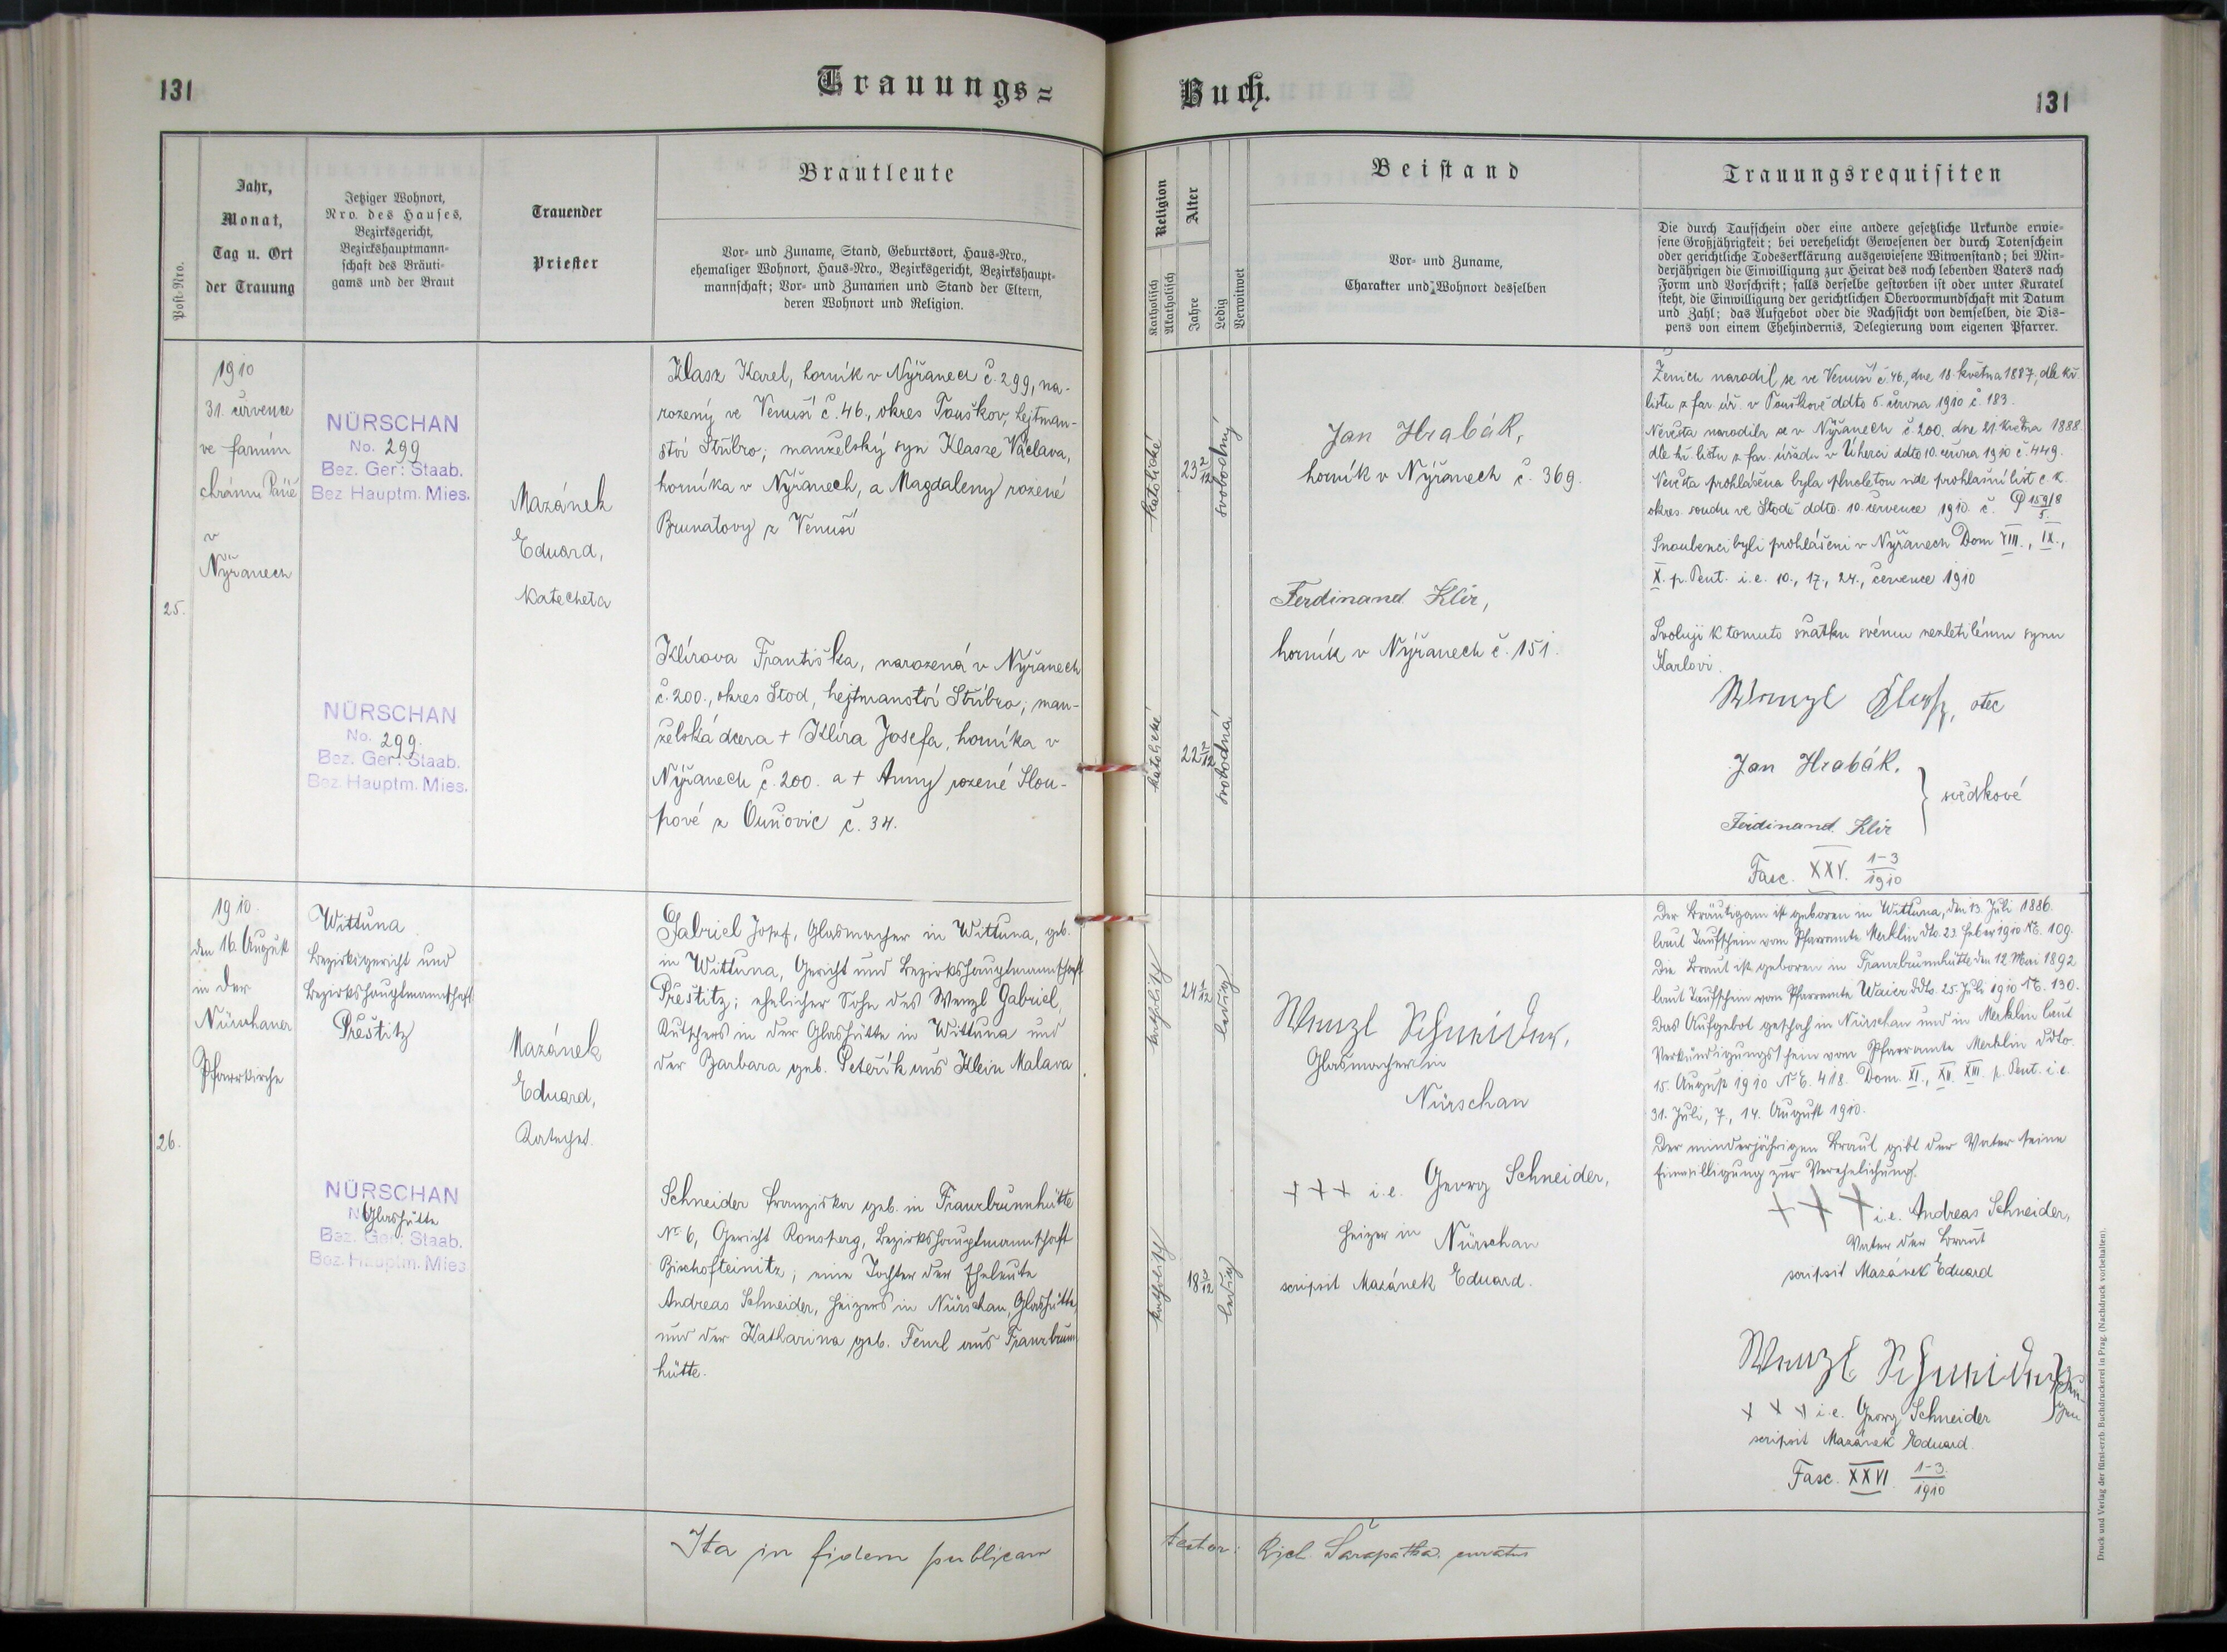 131
Trauungs=
Buch.
131
Post-Nro.
Jahr,
Monat,
Tag u. Ort
der Trauung
Jetziger Wohnort,
Nro. des Hauses,
Bezirksgericht,
Bezirkshauptmann-
schaft des Bräuti-
gams und der Braut
Trauender
Priester
Brautleute
Vor- und Zuname, Stand, Geburtsort, Haus-Nro.,
ehemaliger Wohnort, Haus-Nro., Bezirksgericht, Bezirkshaupt-
mannschaft; Vor- und Zunamen und Stand der Eltern,
deren Wohnort und Religion.
Religion
Katholisch
Akatholisch
Alter
Jahre
Ledig
Verwitwet
Beistand
Vor- und Zuname,
Charakter und Wohnort desselben
Trauungsrequisiten
Die durch Taufschein oder eine andere gesetzliche Urkunde erwie-
sene Großjährigkeit; bei verehelicht Gewesenen der durch Totenschein
oder gerichtliche Todeserklärung ausgewiesene Witwenstand; bei Min-
derjährigen die Einwilligung zur Heirat des noch lebenden Vaters nach
Form und Vorschrift; falls derselbe gestorben ist oder unter Kuratel
steht, die Einwilligung der gerichtlichen Obervormundschaft mit Datum
und Zahl; das Aufgebot oder die Nachsicht von demselben, die Dis-
pens von einem Ehehindernis, Delegierung vom eigenen Pfarrer.
25.
1910
31. července
ve farním
chrámu Páně
v
Nýřanech
NÜRSCHAN
No. 299
Bez. Ger: Staab.
Bez Hauptm. Mies.
NÜRSCHAN
No. 299.
Bez. Ger: Staab.
Bez Hauptm. Mies.
Mazánek
Eduard,
katecheta
Klasz Karel, horník v Nýřanech č. 299, na-
rozený ve Venuší č. 46., okres Touškov, hejtman-
ství Stříbro; manželský syn Klasze Václava,
horníka v Nýřanech, a Magdaleny rozené
Brunatovy z Venuší
Klírova Františka, narozená v Nýřanech
č. 200., okres Stod, hejtmanství Stříbro; man-
želská dcera + Klíra Josefa, horníka v
Nýřanech č. 200. a + Anny rozené Slou-
pové z Ouňovic č. 34.
katolické
23 2/12
svobodný
katolické
22 2/12
svobodná
Jan Hrabák,
horník v Nýřanech č. 369.
Ferdinand Klír,
horník v Nýřanech č. 151.
Ženich narodil se ve Venuší č. 46., dne 18. května 1887, dle kř.
listu z far. úř. v Touškově ddto 5. června 1910 č. 183.
Nevěsta narodila se v Nýřanech č. 200. dne 21. května 1888
dle kř. listu z far. úřadu v Úherci ddto 10. června 1910 č. 449.
Nevěsta prohlášena byla plnoletou vide prohlašní list c. k.
okres. soudu ve Stodě ddto. 10. července 1910. č. P 159/8 5.
Snoubenci byli prohlášeni v Nýřanech Dom VIII., IX.,
X. p. Pent. i. e. 10., 17., 24., července 1910
Svoluji k tomuto sňatku svému nezletilému synu
Karlovi.
Wenzl Klasz, otec
Jan Hrabák.
svědkové
Ferdinand Klír
Fasc. XXV. 1-3/1910
26.
1910.
den 16. August
in der
Nürschaner
Pfarrkirche
Wittuna
Bezirksgericht und
Bezirkshauptmannschaft
Přestitz
NÜRSCHAN
Glashütte
Bez. Ger: Staab.
Bez Hauptm. Mies
Mazánek
Eduard,
Katechet.
Gabriel Josef, Glasmacher in Wittuna, geb.
in Wittuna, Gericht und Bezirkshauptmannschaft
Přestitz; ehelicher Sohn des Wenzl Gabriel,
Kutschers in der Glashütte in Wittuna und
der Barbara geb. Peteřík aus Klein Malava.
Schneider Franziska geb. in Franzbrunnhütte
No 6, Gericht Ronsperg, Bezirkshauptmannschaft
Bischofteinitz; eine Tochter der Eheleute
Andreas Schneider, Heizers in Nürschan, Glashütte,
und der Katharina geb. Fenzl aus Franzbrunn
hütte.
katholisch
24 1/12
ledig
katholisch
18 3/12
ledig
Wenzl Schneider,
Glasmacher in
Nürschan
+++ i. e. Georg Schneider,
Heizer in Nürschan
scripsit Mazánek Eduard.
Der Bräutigam ist geboren in Wittuna, den 13. Juli 1886.
laut Taufschein vom Pfarramte Merklin dto. 23. Feber 1910 No. 109.
Die Braut ist geboren in Franzbrunnhütte den 12 Mai 1892
laut Taufschein vom Pfarramte Waier ddto. 25. Juli 1910 No. 130.
Das Aufgebot geschah in Nürschan und in Merklin laut
Verkündigungsschein vom Pfarramte Merklin ddto.
15. August 1910 No. 418. Dom. XI., XII. XIII. p. Pent. i. e.
31. Juli, 7., 14. August 1910.
Der minderjährigen Braut gibt der Vater seine
Einwilligung zur Verehelichung.
+++ i. e. Andreas Schneider,
Vater der Braut
scripsit Mazánek Eduard
Wenzl Schneider
Zeu-
gen
+++ i. e. Georg Schneider
scripsit Mazánek Eduard.
Fasc. XXVI. 1-3/1910
Ita in fidem publicam
testor: Rich. Šarapatka, curatus
Druck und Verlag der fürst-erzb. Buchdruckerei in Prag. (Nachdruck vorbehalten).